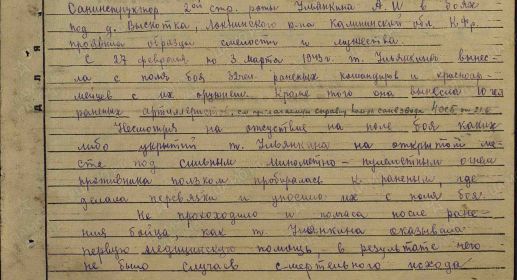 Санинструктор 2ой стр. роты Умянкина А И в боях
под д. Высютка, Локнянского р-на Калининской обл. К.Фр.
проявила образцы смелости и мужества.
С 27 февраля по 3 марта 1943г. т. Умянкина вынес-
ла с поля боя 32 чел. раненых командиров и красноар-
мейцев с их оружием. Кроме того она вынесла 10 чел
раненых артиллеристов, см прилагаемую справку
Несмотря на отсутствие на поле боя каких
либо укрытий т. Умянкина на открытой ме-
сте под сильным минометно-пулеметным огнем
противника ползком пробиралась к раненым, где
делала перевязки и уносила их с поля боя.
Не проходило и полчаса после ране-
ния бойца, как т. Умянкина оказывала
первую медицинскую помощь, в результате чего
не было случаев смертельного исхода
для